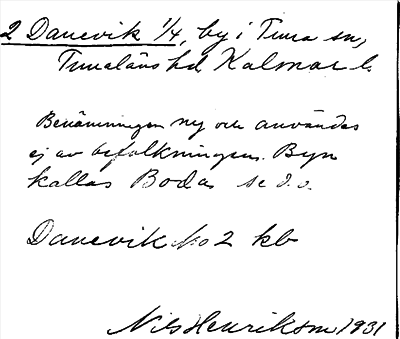 2 Danevik 1/4, by i Tuna sn,
Tunaläns hd Kalmar l.
Benämningen ny och användes
ej av befolkningen. Byn
kallas Boda, se d.o.
Danevik No 2 kb
Nils Henriksson 1931